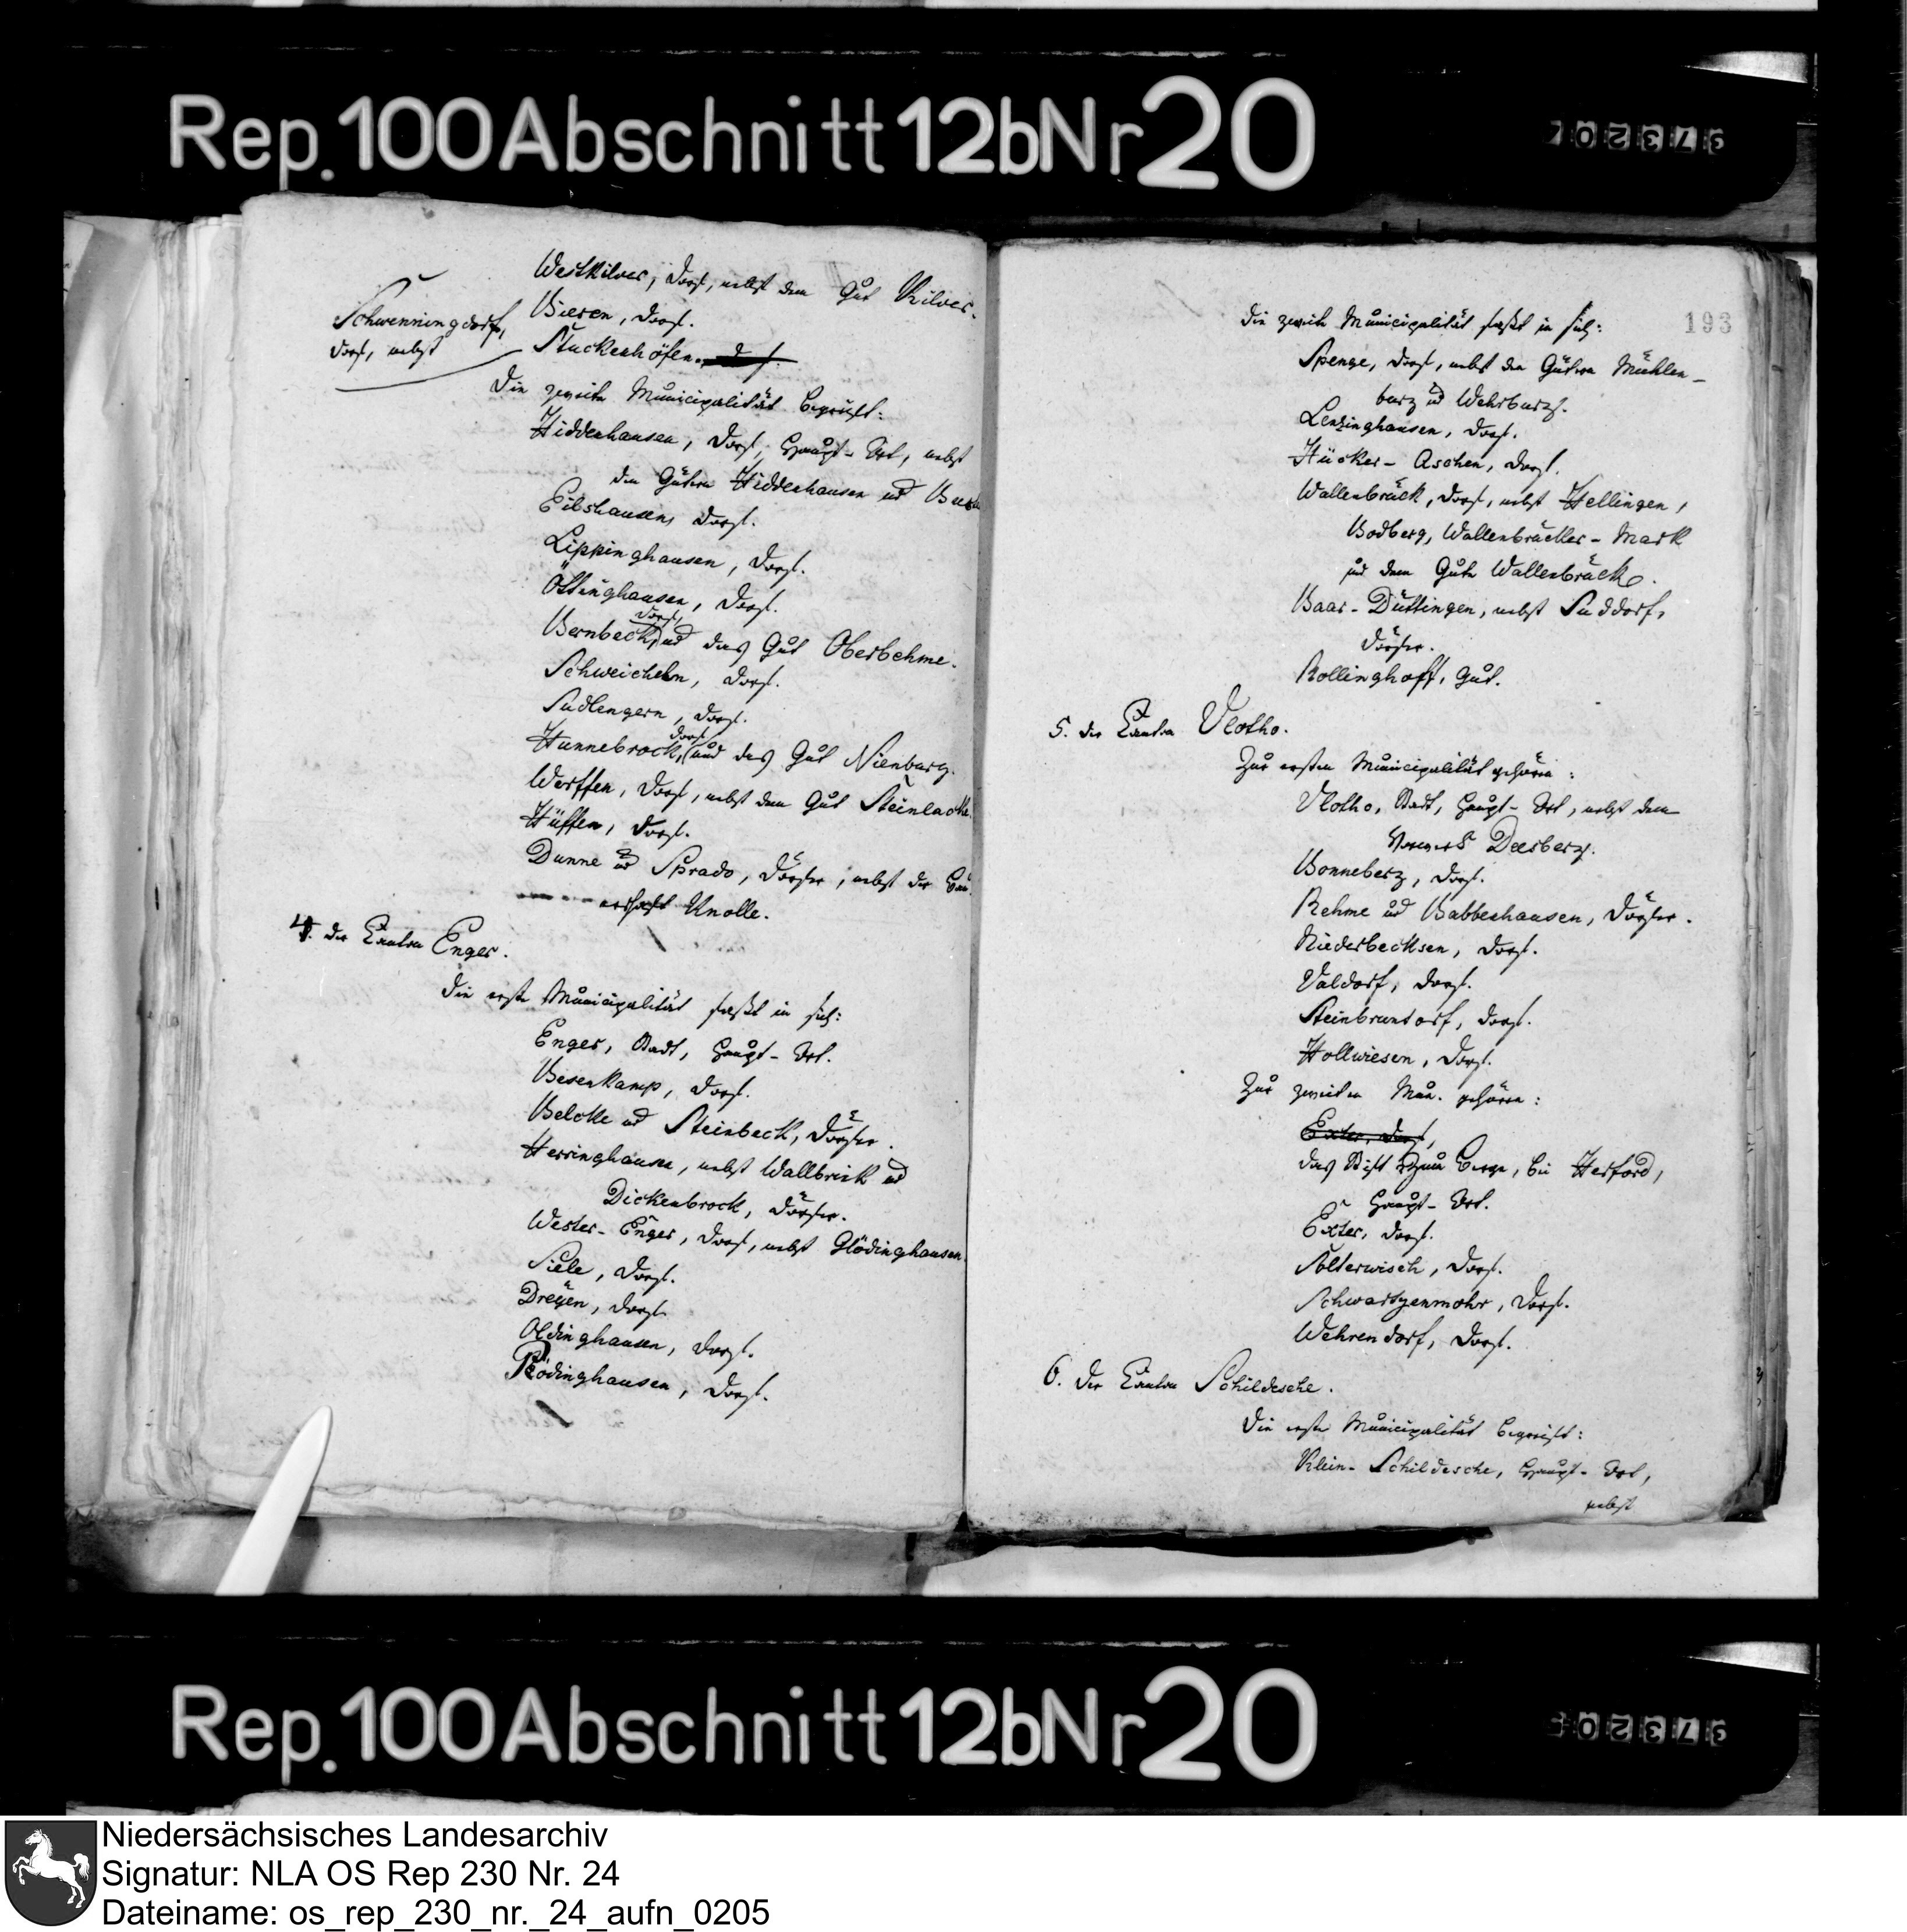 Rep. 100 Abschnitt 12b Nr 20
Westkilver, Dorf, nebst dem Gut Kilver.
Schwenningdorf,
Dorf, nebst
Bieren, Dorf.
Stuckenhöfen.
Die zweite Municipalität begreift:
Hiddenhausen, Dorf, Haupt-Ort, nebst
den Gütern Hiddenhausen und
Eilshausen, Dorf.
Lippinghausen, Dorf.
Öttinghausen, Dorf.
Dorf,
Bernbeck, und das Gut Oberbehme.
Schweicheln, Dorf.
Sudlengern, Dorf.
Dorf,
Hunnebrock, und das Gut Nienburg.
Werffen, Dorf, nebst dem Gut Steinlacke.
Hüffen, Dorf.
Dunne und Sprado, Dörfer, nebst der Bau-
erschaft Knolle.
4. der Canton Enger.
Die erste Municipalität faßt in sich:
Enger, Stadt, Haupt-Ort.
Besenkamp, Dorf.
Belcke und Steinbeck, Dörfer.
Herringhausen, nebst Wallbrink und
Dickenbrock, Dörfer.
Wester-Enger, Dorf, nebst Glödinghausen.
Siele, Dorf.
Dreyen, Dorf.
Oldinghausen, Dorf.
Pödinghausen, Dorf.
193
Die zweite Municipalität faßt in sich:
Spenge, Dorf, nebst den Gütern Mühlen-
burg und Wehrburg.
Lenzinghausen, Dorf.
Hücker-Aschen, Dorf.
Wallenbrück, Dorf, nebst Hellingen,
Bodberg, Wallenbrücker-Mark
und dem Gute Wallenbrück.
Baar-Düttingen, nebst Suddorf,
Dörfer.
Rollinghoff, Gut.
5. der Canton Vlotho.
Zur ersten Municipalität gehören:
Vlotho, Stadt, Haupt-Ort, nebst dem
Vorwerk Deesberg.
Bonneberg, Dorf.
Rehme und Babbenhausen, Dörfer.
Niederbecksen, Dorf.
Valdorf, Dorf.
Steinbrundorf, Dorf.
Hollwiesen, Dorf.
Zur zweiten Mun. gehören:
Exter, Dorf,
das Stift zum Berge, bei Herford,
Haupt-Ort.
Exter, Dorf.
Solterwisch, Dorf.
Schwartzenmohr, Dorf.
Wehrendorf, Dorf.
6. Der Canton Schildesche.
Die erste Municipalität begreift:
Klein-Schildesche, Haupt-Ort,
nebst
Rep. 100 Abschnitt 12b Nr 20
Niedersächsisches Landesarchiv
Signatur: NLA OS Rep 230 Nr. 24
Dateiname: os_rep_230_nr._24_aufn_0205